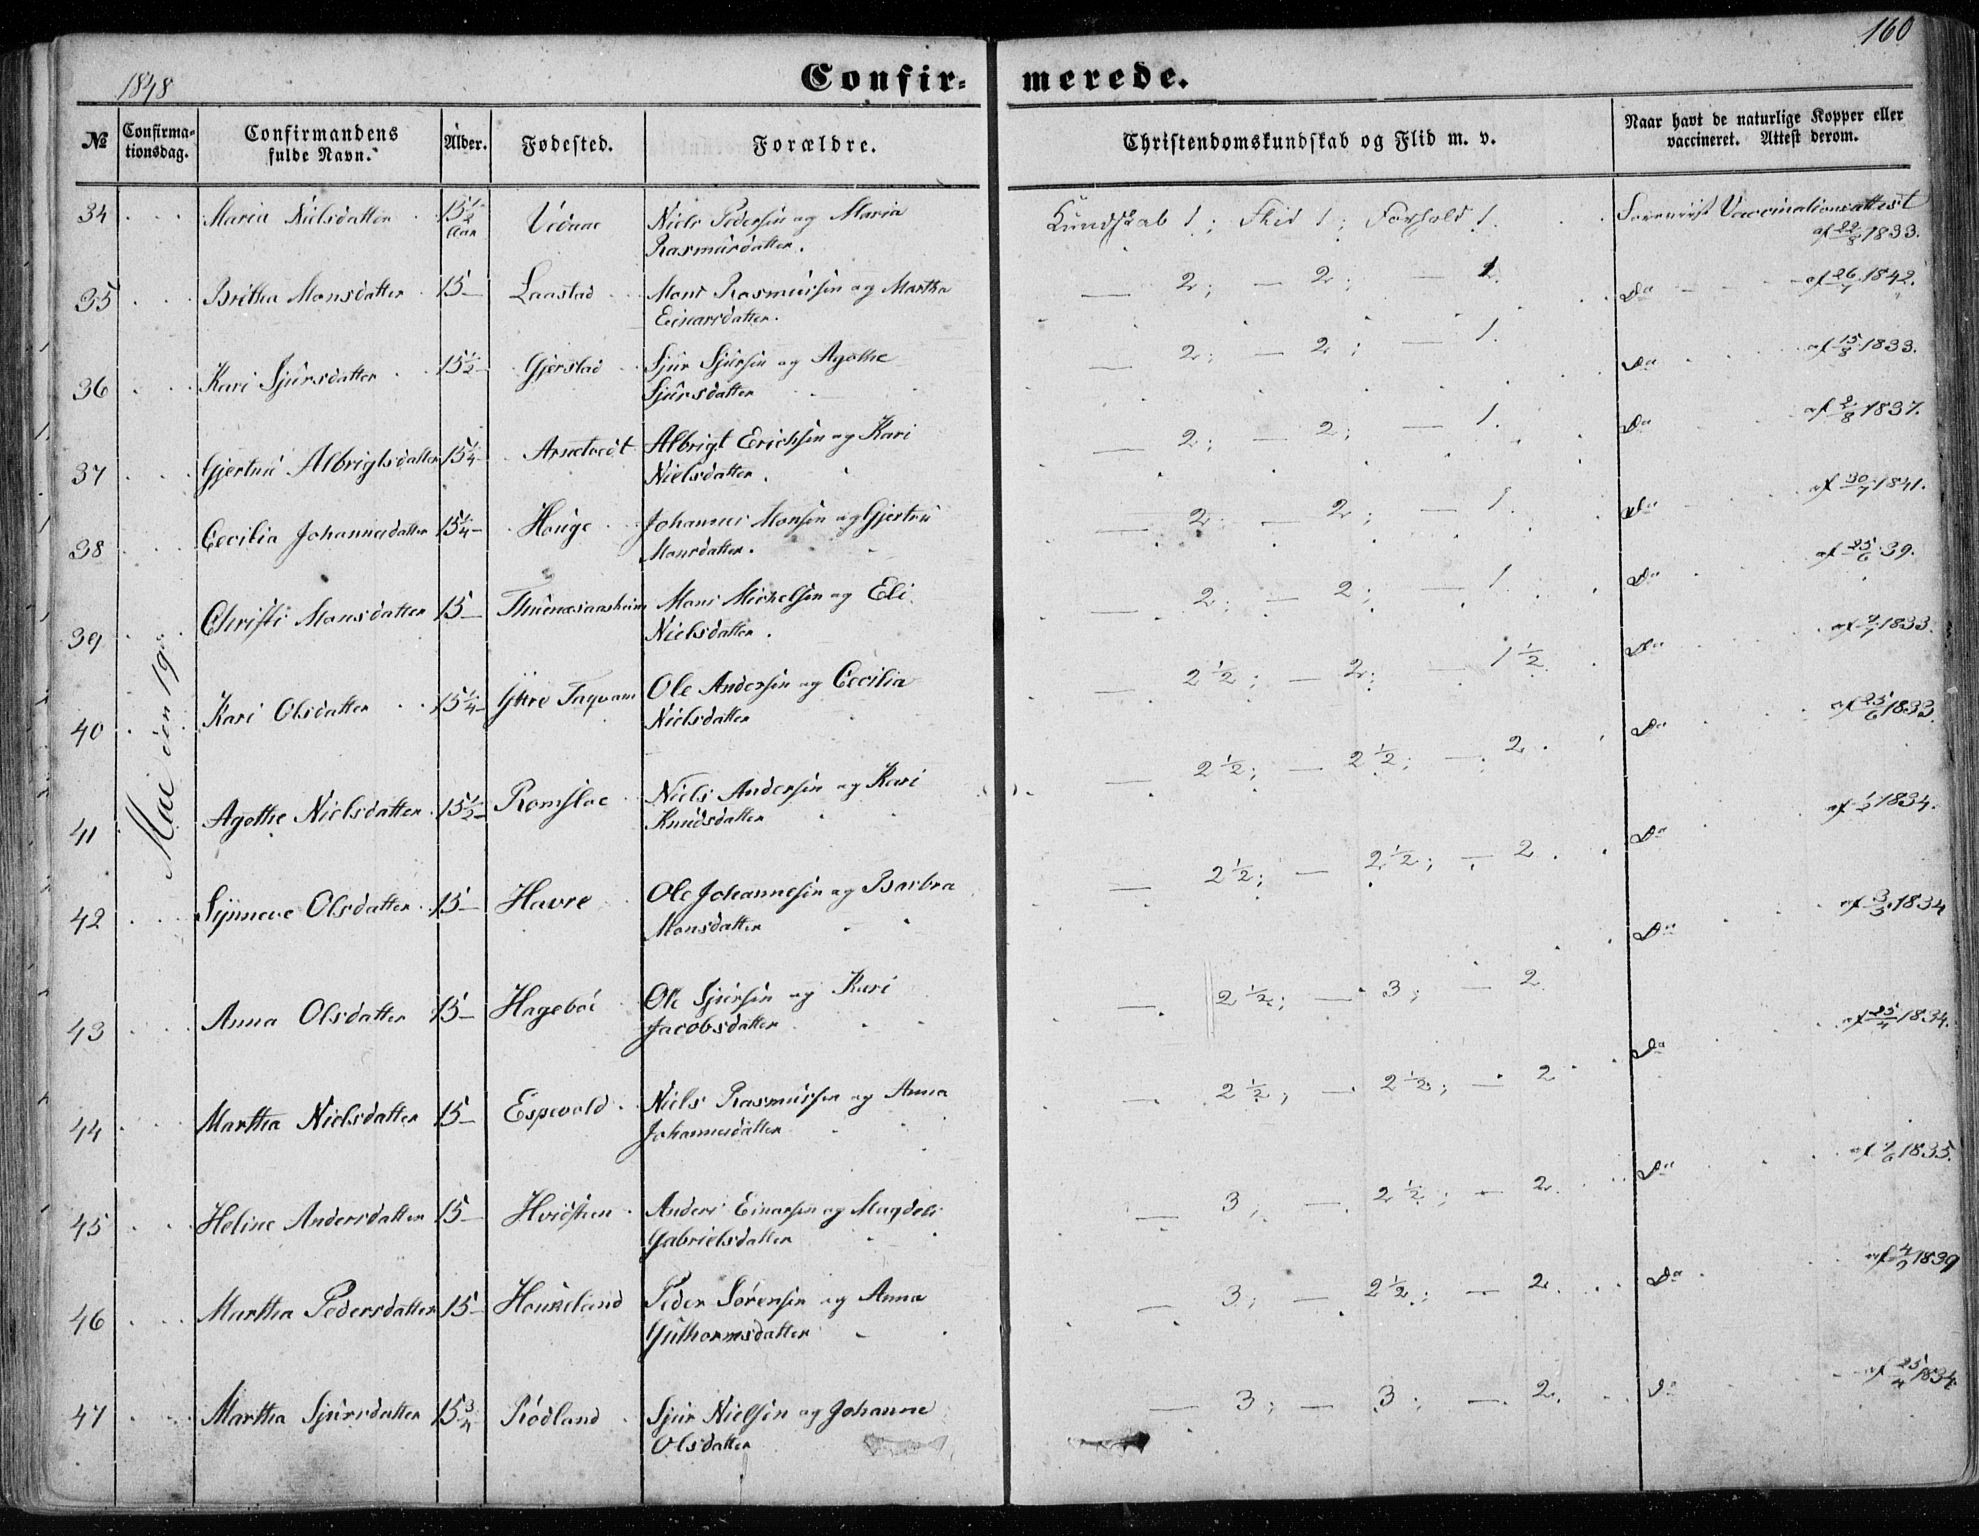 160
1848
Confir- merede.
№ Confirma-tionsdag. Confirmandens fulde Navn. Alder. Fødested. Forældre. Christendomskundskab og Flid m. v. Naar havt de naturlige Kopper eller vaccineret. Attest derom.
Mai den 19de
34 Maria Nielsdatter 15½ Aar Vidnæ Niels Pedersen og Maria Kundskab 1; Flid 1; Forhold 1. Forevist Vaccinationsattest
Rasmusdatter. af 22/8 1833.
35 Britha Monsdatter 15 — Laastad Mons Rasmussen og Martha — 2; — 2; — 1. Do af 26/7 1842.
Einarsdatter.
36 Kari Sjursdatter 15½ — Gjerstad Sjur Sjursen og Agothe — 2; — 2; — 1. Do af 15/8 1833.
Sjursdatter
37 Gjertru Albrigtsdatter 15¼ — Arnetvedt Albrigt Erichsen og Kari — 2; — 2; — 1. Do af 2/8 1837.
Nielsdatter.
38 Cecilia Johannesdatter 15¼ — Houge Johannes Monsen og Gjertru — 2; — 2; — 1. Do af 30/7 1841.
Monsdatter.
39 Christi Monsdatter 15 — Mons Michelsen og Eli — 2; — 2; — 1 Do af 25/6 39.
Nielsdatter.
40 Kari Olsdatter 15¼ — Yttre Taqvam Ole Andersen og Cecilia — 2½; — 2; — 1½. Do 1833.
Nielsdatter
41 Agothe Nielsdatter 15½ — Romsloe Niels Andersen og Kari — 2½; — 2½; — 2. Do af 25/6 1833.
Knudsdatter
42 Synneve Olsdatter 15 — Havre Ole Johannesen og Barbra — 2½; — 2½; — 2. Do 1834.
Monsdatter
43 Anna Olsdatter 15 — Hagebøe Ole Sjursen og Kari — 2½; — 3; — 2 Do af 3/3 1834
Jacobsdatter
44 Martha Nielsdatter 15 — Espevold Niels Rasmussen og Anna — 2½; — 2½; — 2 Do af 25/4 1834.
Johannesdatter
45 Heline Andersdatter 15 — Hvidsteen Anders Einarsen og Magdeli — 3; — 2½; — 2. Do 1835.
Gabrielsdatter
46 Martha Pedersdatter 15 — Houkeland Peder Sørensen og Anna — 3; — 2½; — 2. Do 1839
Guthormsdatter
47 Martha Sjursdatter 15¾ Rødland Sjur Nielsen og Johanne — 3; — 3; — 2. Do af 25/4 1834.
Olsdatter